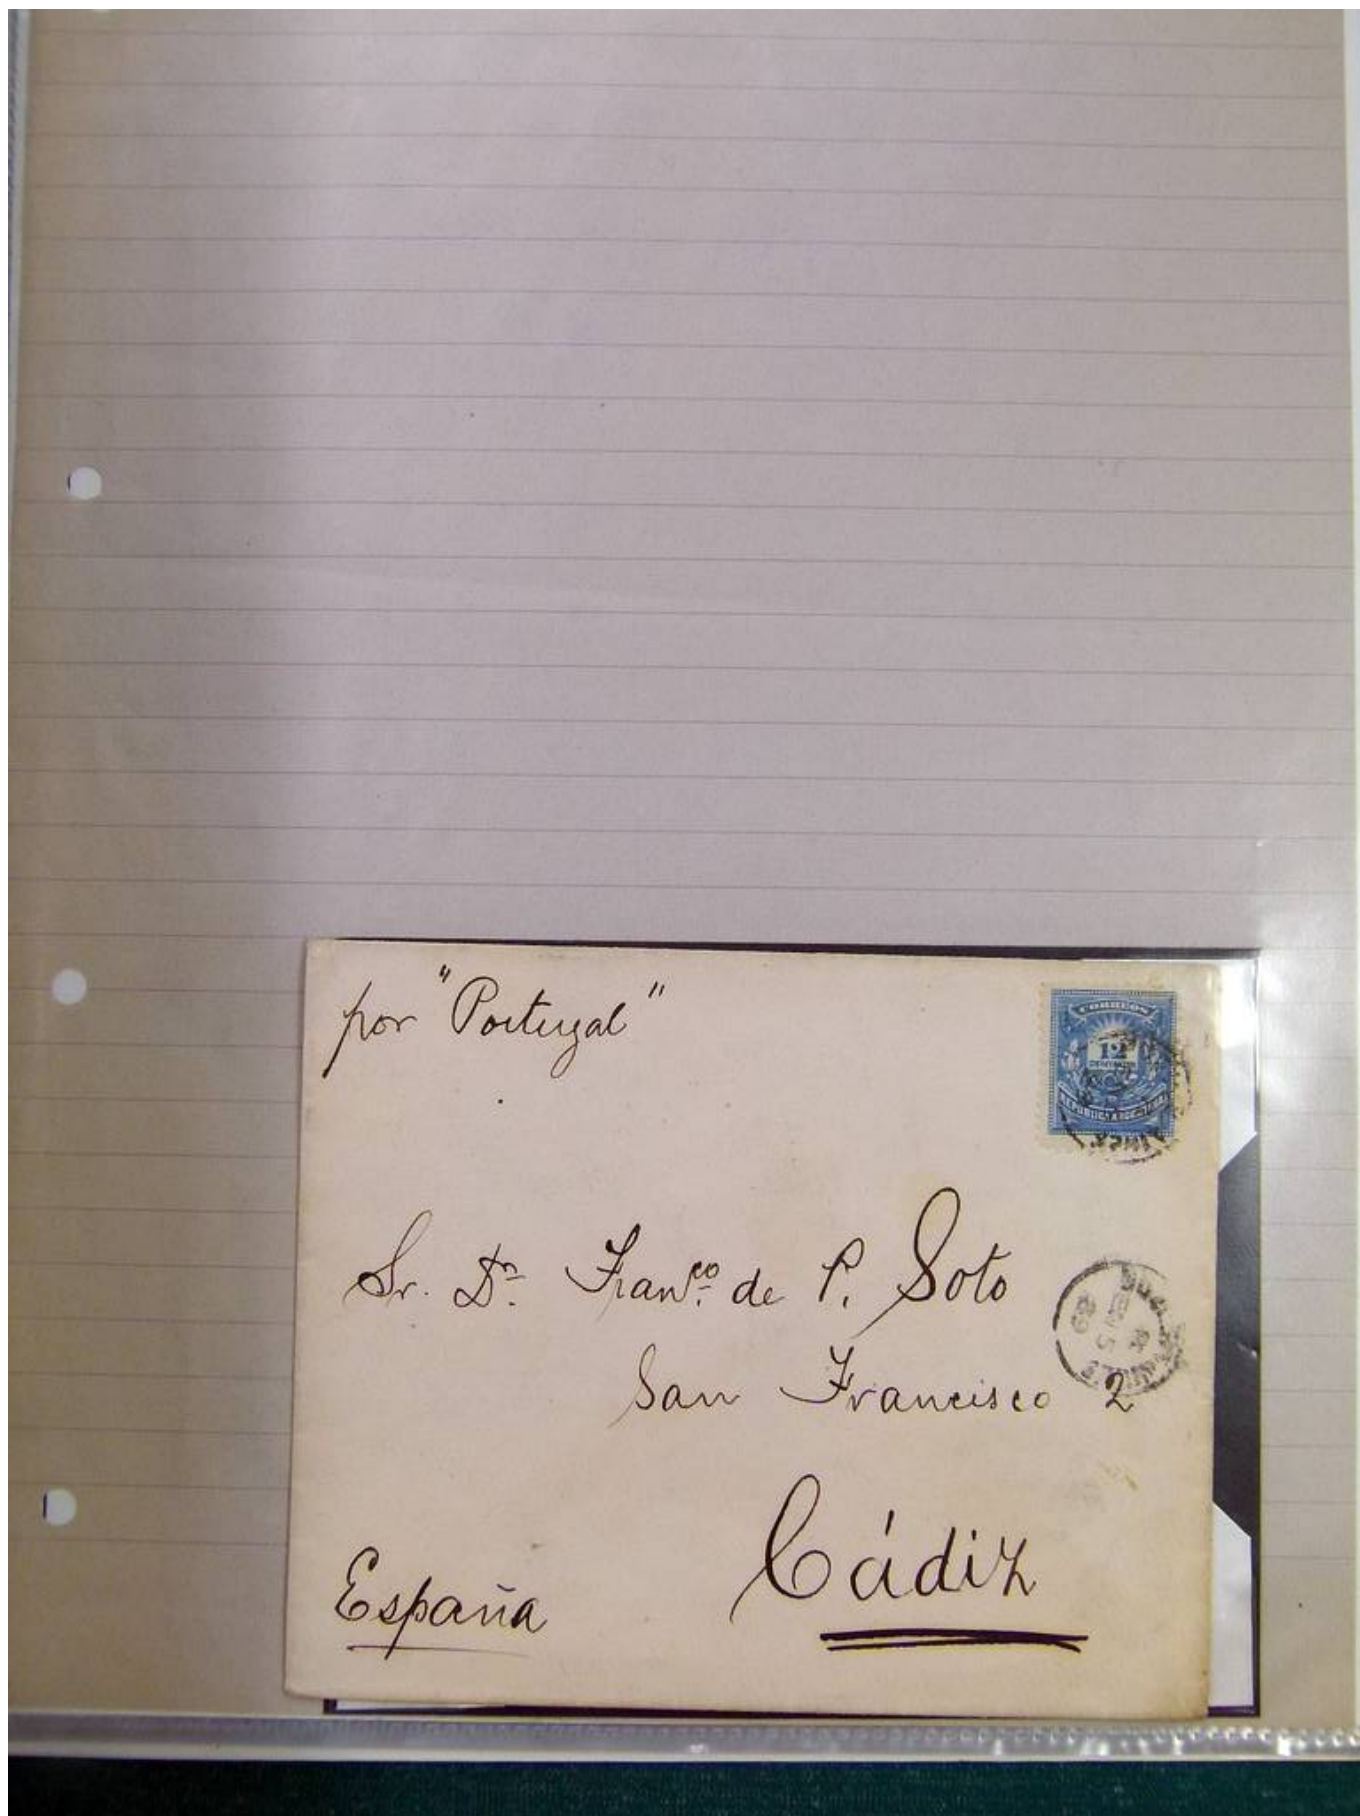 por "Portugal"
CORREOS
12
CENTAVOS
REPUBLICA ARGENTINA
Sr. Dn. Franco. de P. Soto
San Francisco 2
EN 5
89
Cádiz
España